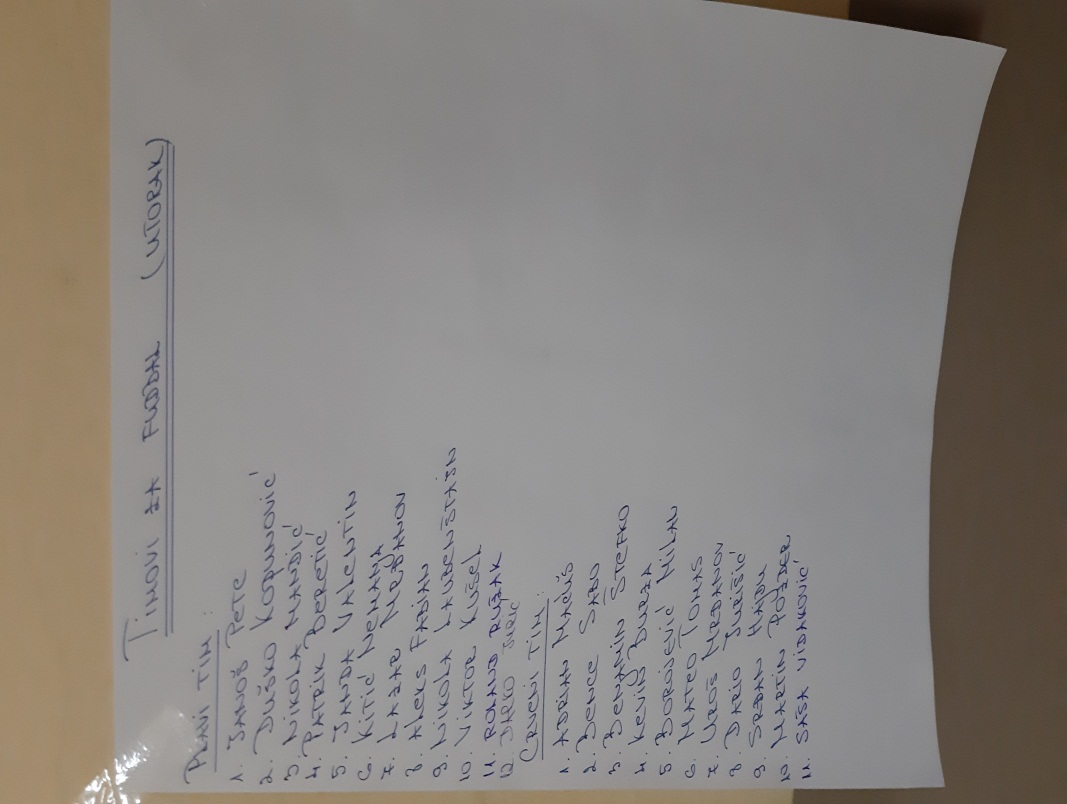 TIMOVI ZA FUDBAL (UTORAK)
PLAVI TIM:
1. JANOŠ PETE
2. DUŠKO KODUNOVIĆ
3. NIKOLA MANDIĆ
4. PATRIK BERETIĆ
5. JANDA VALENTIN
6. KITIĆ NEMANJA
7. LAZAR MRĐANOV
8. ALEKS FABIAN
9. NIKOLA LAUBENŠTAJN
10. VIKTOR KUŠEL
11. ROLAND RUŽAK
12. DARKO JURIĆ
CRVENI TIM:
1. ADRIAN MAĆUŠ
2. BENCE SABO
3. BENJAMIN ŠTEFKO
4. KEVIN BURZA
5. BOROJEVIĆ MILAN
6. MATEO TOMAS
7. UROŠ MRĐANOV
8. DARIO JURIŠIĆ
9. SRĐAN HAJDU
10. MARTIN POŽDER
11. SAŠA VIDAKOVIĆ